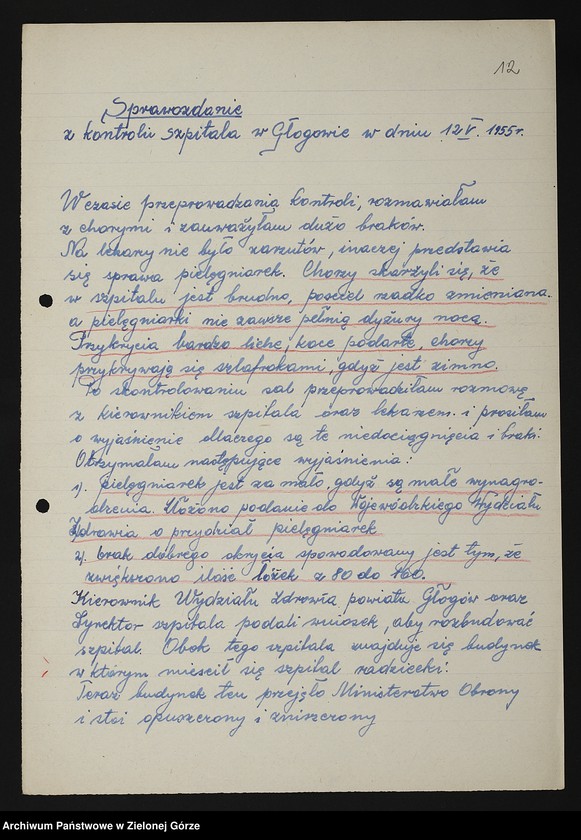 12
Sprawozdanie
z kontroli szpitala w Głogowie w dniu 12 V. 1955r.
W czasie przeprowadzania kontroli, rozmawiałam
z chorymi i zauważyłam dużo braków.
Na lekarzy nie było zarzutów, inaczej przedstawia
się sprawa pielęgniarek. Chorzy skarżyli się, że
w szpitalu jest brudno, pościel rzadko zmieniana.
a pielęgniarki nie zawsze pełnią dyżury nocą.
Przykrycia bardzo liche, koce podarte, chorzy
przykrywają się szlafrokami, gdyż jest zimno.
Po skontrolowaniu sal przeprowadziłam rozmowę
z kierownikiem szpitala oraz lekarzem i prosiłam
o wyjaśnienie dlaczego są te niedociągnięcia i braki.
Otrzymałam następujące wyjaśnienia:
1). pielęgniarek jest za mało, gdyż są małe wynagro-
dzenia. Złożono podanie do Wojewódzkiego Wydziału
Zdrowia o przydział pielęgniarek
2). brak dobrego okrycia spowodowany jest tym, że
zwiększono ilość łóżek z 80 do 160.
Kierownik Wydziału Zdrowia powiatu Głogów oraz
Dyrektor szpitala podali wniosek, aby rozbudować
szpital. Obok tego szpitala znajduje się budynek
w którym mieścił się szpital radziecki.
Teraz budynek ten przejęło Ministerstwo Obrony
i stoi opuszczony i zniszczony
Archiwum Państwowe w Zielonej Górze